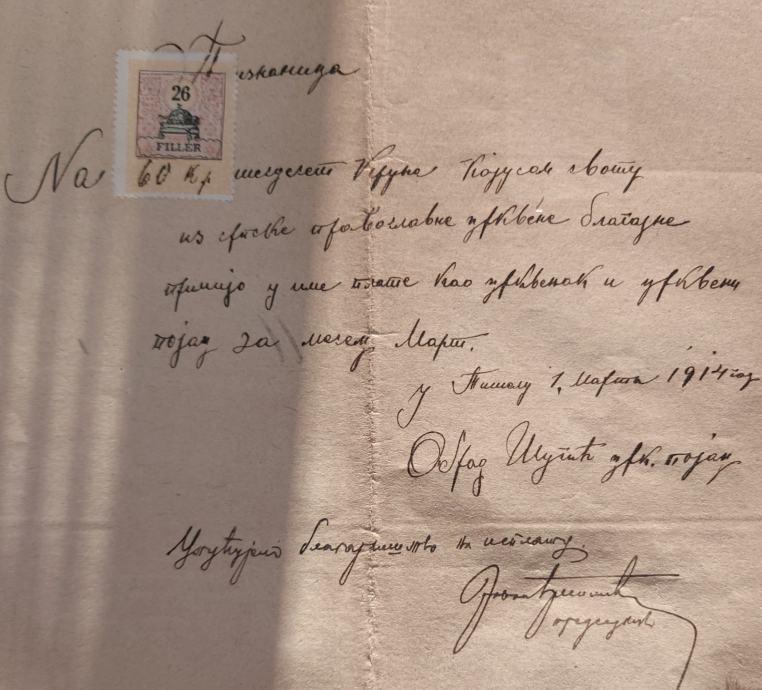 Признаница
26
FILLÉR
На 60 Кр шездесет Круне Којусам своту
из српске православне црквене благајне
примијо у име плате као црквенак и црквени
појац за месец Март.
у 1, Марта 1914 год
Обрад Шугић црк. појац
Упућујем благајништво на исплату.